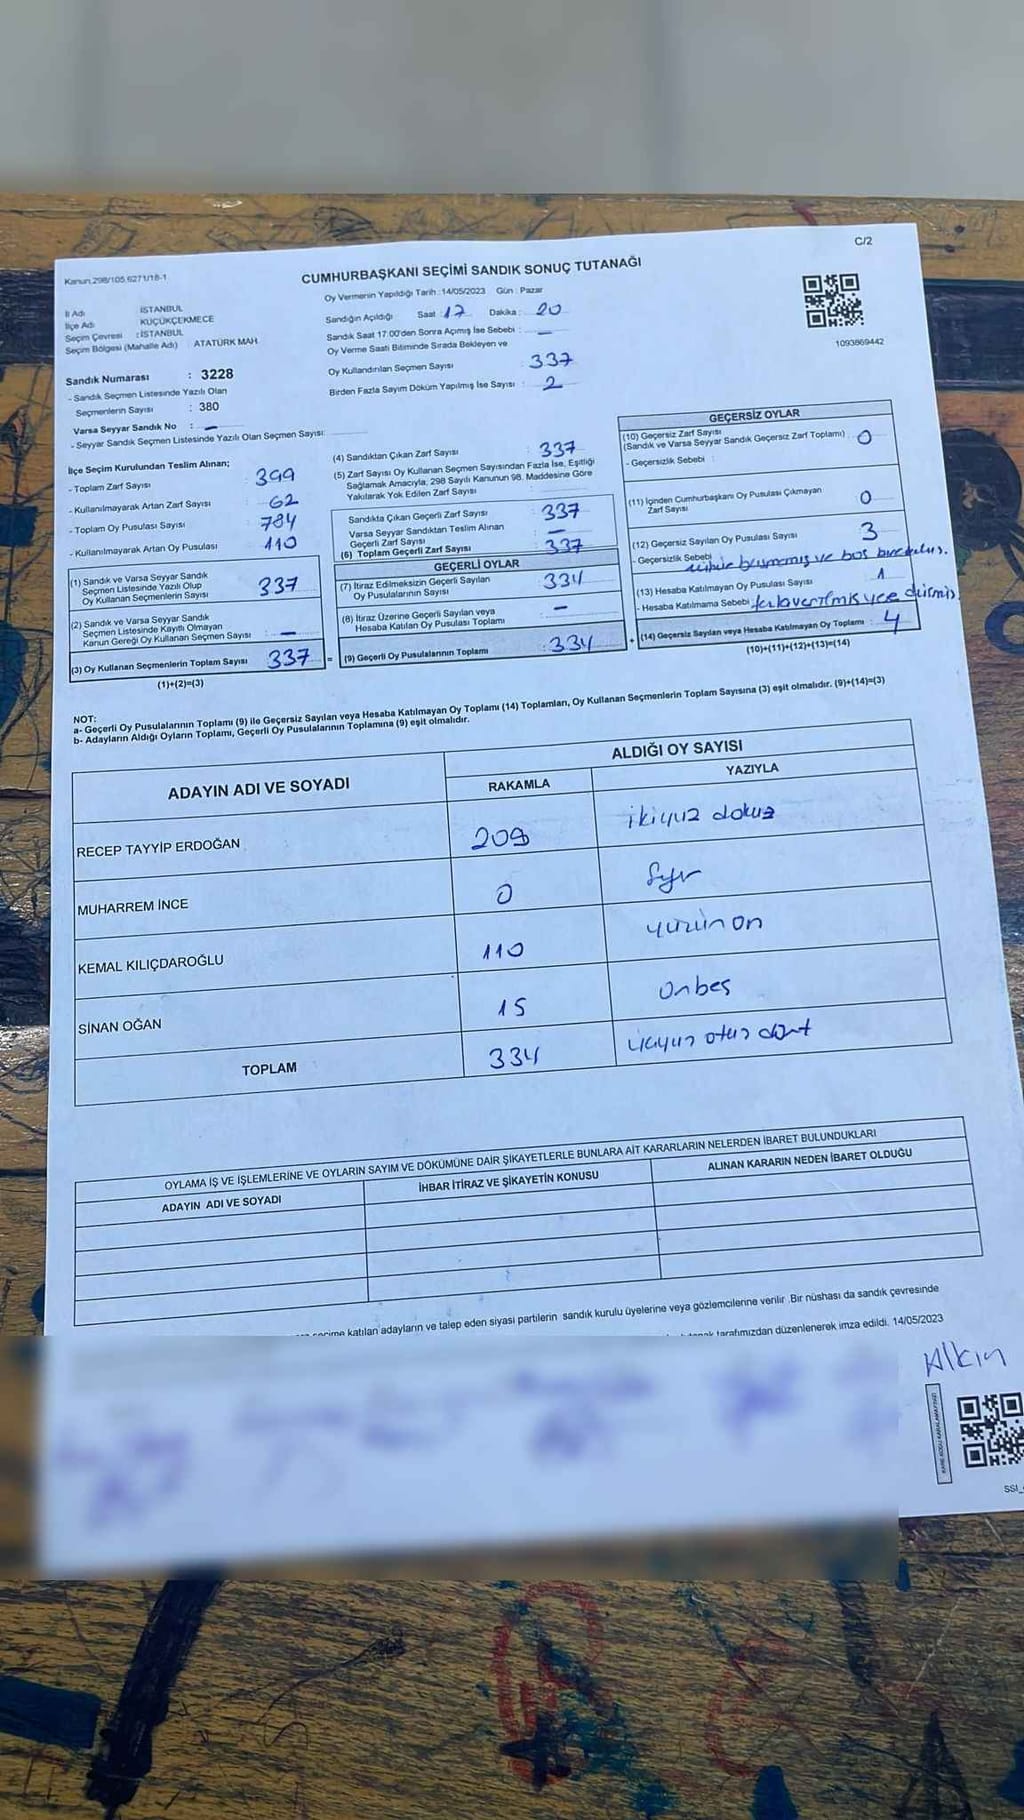 C/2
Kanun.298/105,6271/18-1
CUMHURBAŞKANI SEÇİMİ SANDIK SONUÇ TUTANAĞI
İl Adı İSTANBUL
İlçe Adı KÜÇÜKÇEKMECE
Seçim Çevresi : İSTANBUL
Seçim Bölgesi (Mahalle Adı) ATATÜRK MAH
Sandık Numarası : 3228
- Sandık Seçmen Listesinde Yazılı Olan
Seçmenlerin Sayısı : 380
Varsa Seyyar Sandık No : -
- Seyyar Sandık Seçmen Listesinde Yazılı Olan Seçmen Sayısı:
Oy Vermenin Yapıldığı Tarih :14/05/2023 Gün : Pazar
Sandığın Açıldığı Saat : 17 Dakika : 20
Sandık Saat 17:00'den Sonra Açımış İse Sebebi : -
Oy Verme Saati Bitiminde Sırada Bekleyen ve
Oy Kullandırılan Seçmen Sayısı : 337
Birden Fazla Sayım Döküm Yapılmış İse Sayısı : 2
1093869442
İlçe Seçim Kurulundan Teslim Alınan;
- Toplam Zarf Sayısı : 399
- Kullanılmayarak Artan Zarf Sayısı : 62
- Toplam Oy Pusulası Sayısı : 784
- Kullanılmayarak Artan Oy Pusulası : 110
(1) Sandık ve Varsa Seyyar Sandık
Seçmen Listesinde Yazılı Olup
Oy Kullanan Seçmenlerin Sayısı : 337
(2) Sandık ve Varsa Seyyar Sandık
Seçmen Listesinde Kayıtlı Olmayan
Kanun Gereği Oy Kullanan Seçmen Sayısı : -
(3) Oy Kullanan Seçmenlerin Toplam Sayısı 337 =
(1)+(2)=(3)
(4) Sandıktan Çıkan Zarf Sayısı : 337
(5) Zarf Sayısı Oy Kullanan Seçmen Sayısından Fazla İse, Eşitliği
Sağlamak Amacıyla; 298 Sayılı Kanunun 98. Maddesine Göre
Yakılarak Yok Edilen Zarf Sayısı
Sandıkta Çıkan Geçerli Zarf Sayısı : 337
Varsa Seyyar Sandıktan Teslim Alınan
Geçerli Zarf Sayısı : -
(6) Toplam Geçerli Zarf Sayısı : 337
GEÇERLİ OYLAR
(7) İtiraz Edilmeksizin Geçerli Sayılan
Oy Pusulalarının Sayısı : 334
(8) İtiraz Üzerine Geçerli Sayılan veya
Hesaba Katılan Oy Pusulası Toplamı : -
(9) Geçerli Oy Pusulalarının Toplamı : 334 +
GEÇERSİZ OYLAR
(10) Geçersiz Zarf Sayısı
(Sandık ve Varsa Seyyar Sandık Geçersiz Zarf Toplamı) : 0
- Geçersizlik Sebebi :
(11) İçinden Cumhurbaşkanı Oy Pusulası Çıkmayan
Zarf Sayısı : 0
(12) Geçersiz Sayılan Oy Pusulası Sayısı : 3
- Geçersizlik Sebebi ve boş
(13) Hesaba Katılmayan Oy Pusulası Sayısı : 1
- Hesaba Katılmama Sebebi :
(14) Geçersiz Sayılan veya Hesaba Katılmayan Oy Toplamı : 4
(10)+(11)+(12)+(13)=(14)
NOT:
a- Geçerli Oy Pusulalarının Toplamı (9) ile Geçersiz Sayılan veya Hesaba Katılmayan Oy Toplamı (14) Toplamları, Oy Kullanan Seçmenlerin Toplam Sayısına (3) eşit olmalıdır. (9)+(14)=(3)
b- Adayların Aldığı Oyların Toplamı, Geçerli Oy Pusulalarının Toplamına (9) eşit olmalıdır.
ADAYIN ADI VE SOYADI ALDIĞI OY SAYISI
RAKAMLA YAZIYLA
RECEP TAYYİP ERDOĞAN 209 ikiyüz dokuz
MUHARREM İNCE 0 Sıfır
KEMAL KILIÇDAROĞLU 110 on
SİNAN OĞAN 15 onbeş
TOPLAM 334 üçyüz otuz dört
OYLAMA İŞ VE İŞLEMLERİNE VE OYLARIN SAYIM VE DÖKÜMÜNE DAİR ŞİKAYETLERLE BUNLARA AİT KARARLARIN NELERDEN İBARET BULUNDUKLARI
ADAYIN ADI VE SOYADI İHBAR İTİRAZ VE ŞİKAYETİN KONUSU ALINAN KARARIN NEDEN İBARET OLDUĞU
seçime katılan adayların ve talep eden siyasi partilerin sandık kurulu üyelerine veya gözlemcilerine verilir .Bir nüshası da sandık çevresinde
tarafımızdan düzenlenerek imza edildi. 14/05/2023
Alkın